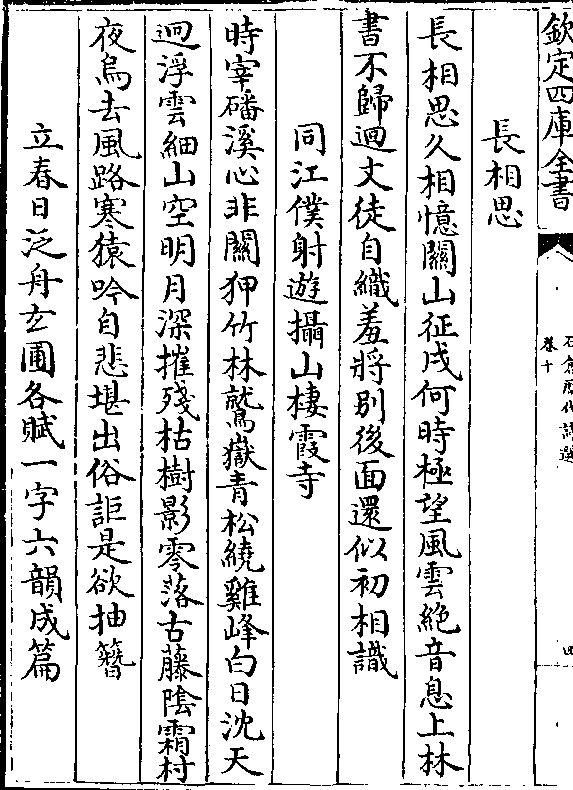 欽定四庫全書
石倉歷代詩選
卷十
四
長相思
長相思久相憶關山征戍何時極望風雲絶音息上林
書不歸迴文徒自織羞將別後面還似初相識
同江僕射遊攝山棲霞寺
時宰磻溪心非關狎竹林鷲嶽青松繞雞峰白日沈天
迥浮雲細山空明月深摧殘枯樹影零落古藤陰霜村
夜烏去風路寒猿吟自悲堪出俗詎是欲抽簪
立春日泛舟玄圃各賦一字六韻成篇